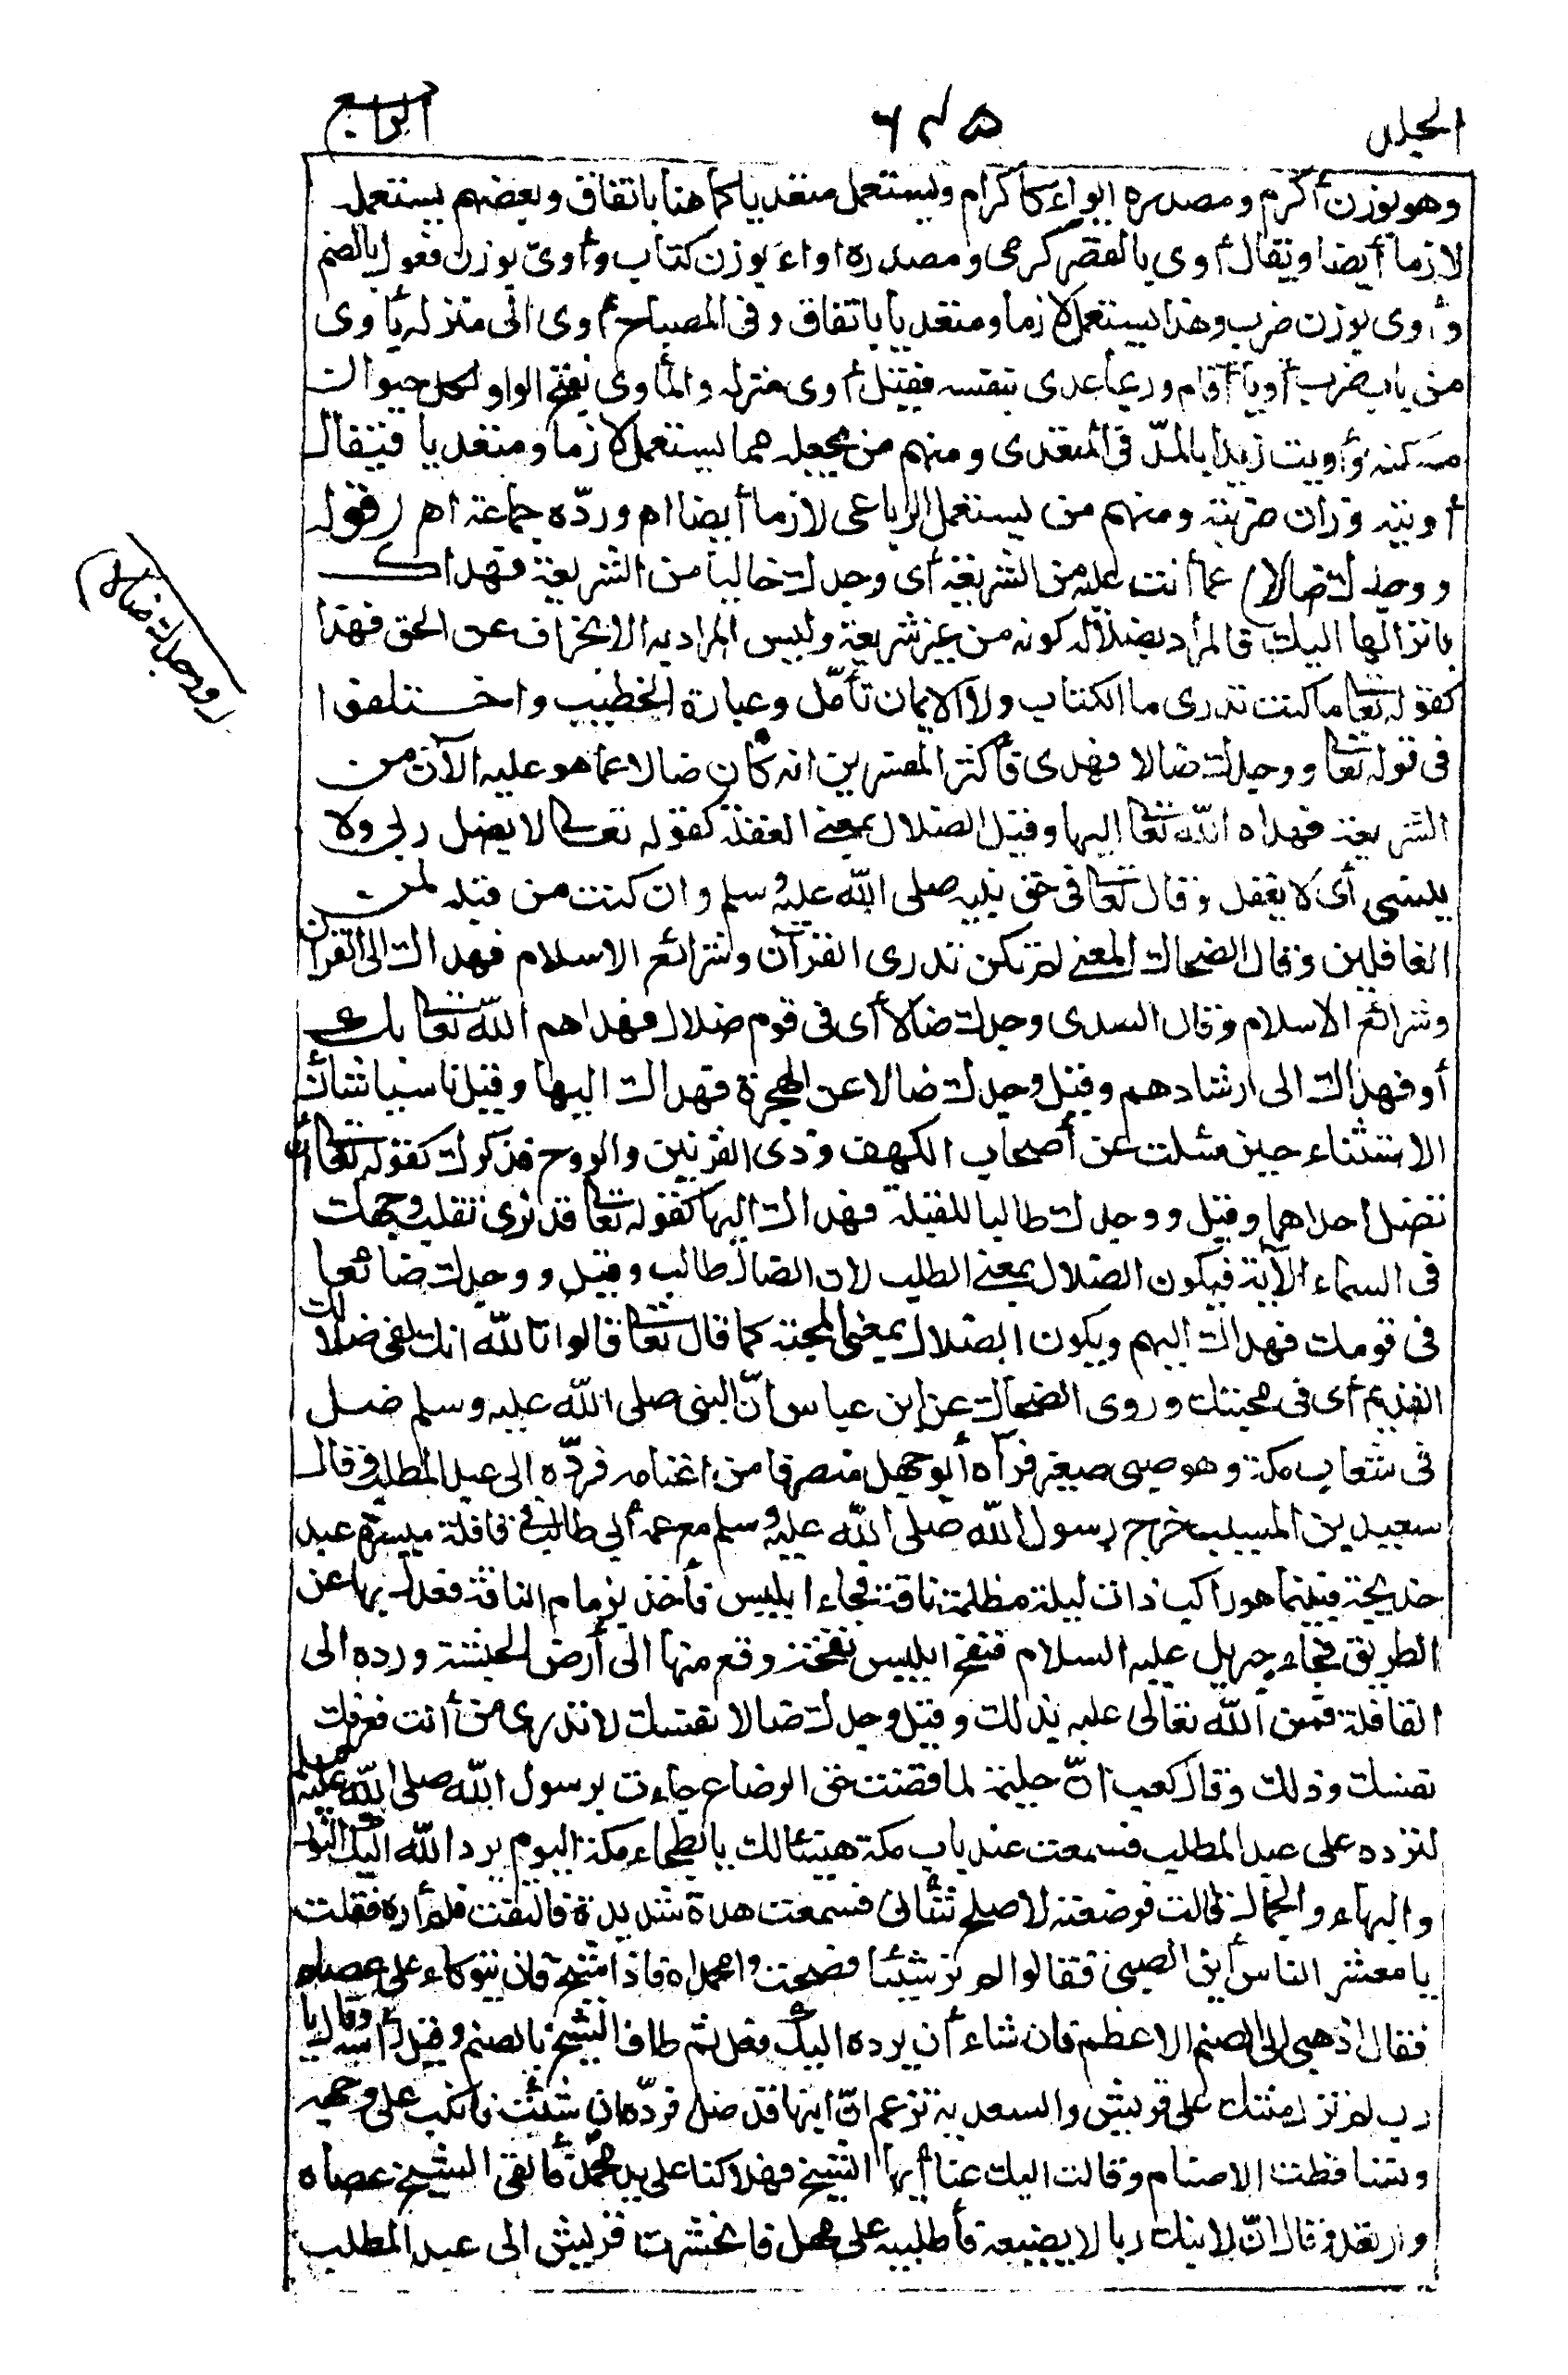 الجلد ٦٤٥ الرابع
وهو بوزن أكرم ومصدره ايواء كاكرام ويستعمل متعديا كما هنا باتفاق وبعضهم يستعمل
لازما أيضا ويقال أوى بالقصر كرمى ومصدره اواء بوزن كتاب وأوىّ بوزن فعول بالضم
وأوى بوزن ضرب وهذا يستعمل لازما ومتعديا باتفاق وفى المصباح أوى الى منزله يأوى
من باب ضرب أويا أقام وربما عدى بنفسه فقيل أوى منزله والمأوى بفتح الواو لكل حيوان
مسكنه وأويت زيدا بالمدّ فى المتعدى ومنهم من يجعله مما يستعمل لازما ومتعديا فيقال
أويته وزان ضربته ومنهم من يستعمل الرباعى لازما أيضا اه وردّه جماعة اه (قوله
ووجدك ضالا) عما أنت عليه من الشريعة أى وجدك خاليا من الشريعة فهداك
بانزالها اليك فالمراد بضلاله كونه من غير شريعة وليس المراد به الانحراف عن الحق فهذا
كقوله تعا ما كنت تدرى ما الكتاب ولا الايمان تأمّل وعبارة الخطيب واختلفوا
فى قوله تعا ووجدك ضالا فهدى فأكثر المفسرين انه كان ضالا عما هو عليه الآن من
الشريعة فهداه الله تعا اليها وقيل الضلال بمعنى الغفلة كقوله تعا لا يضل ربى ولا
ينسى أى لا يغفل وقال تعا فى حق نبيه صلى الله عليه وسلم وان كنت من قبله لمن
الغافلين وقال الضحاك المعنى لم تكن تدرى القرآن وشرائع الاسلام فهداك الى القرآن
وشرائع الاسلام وقال السدى وجدك ضالا أى فى قوم ضلال فهداهم الله تعا بك
أو فهداك الى ارشادهم وقيل وجدك ضالا عن الهجرة فهداك اليها وقيل ناسيا شأن
الاستثناء حين سئلت عن أصحاب الكهف وذى القرنين والروح فذكرك كقوله تعا أن
تضل احداهما وقيل ووجدك طالبا للقبلة فهداك اليها كقوله تعا قد نرى تقلب وجهك
فى السماء الآية فيكون الضلال بمعنى الطلب لان الضال طالب وقيل ووجدك ضائعا
فى قومك فهداك اليهم ويكون الضلال بمعنى المحبة كما قال تعا قالوا تالله انك لفى ضلالك
القديم أى فى محبتك وروى الضحاك عن ابن عباس انّ النبى صلى الله عليه وسلم ضل
فى شعاب مكة وهو صبى صغير فرآه أبو جهل منصرفا من اغنامه فردّه الى عبد المطلب وقال
سعيد بن المسيب خرج رسول الله صلى الله عليه وسلم مع عمه أبى طالب فى قافلة ميسرة عبد
خديجة فبينما هو راكب ذات ليلة مظلمة ناقة فجاء ابليس فأخذ بزمام الناقة فعدل بها عن
الطريق فجاء جبريل عليه السلام فنفخ ابليس نفخة وقع منها الى أرض الحبشة ورده الى
القافلة فمنّ الله تعالى عليه بذلك وقيل وجدك ضالا نفسك لا تدرى من أنت فعرفك
نفسك وذلك وقال كعب انّ حليمة لما قضت حق الرضاع جاءت برسول الله صلى الله عليه وسلم
لترده على عبد المطلب فسمعت عند باب مكة هنيئا لك يا بطحاء مكة اليوم يرد الله اليك النور
والبهاء والجمال قالت فوضعته لاصلح ثيابى فسمعت هدة شديدة فالتفت فلم أره فقلت
يا معشر الناس أين الصبى فقالوا لم نر شيئا فصحت وامحمداه فاذا شيخ فان يتوكاء على عصاه
فقال اذهبى الى الصنم الاعظم فان شاء أن يرده اليك فعل ثم طاف الشيخ بالصنم وقبل رأسه وقال يا
رب لم تزل منتك على قريش والسعدية تزعم انّ ابنها قد ضل فردّه ان شئت فانكب على وجهه
وتساقطت الاصنام وقالت اليك عنا أيها الشيخ فهلاكنا على يد محمد فألقى الشيخ عصاه
وارتعد وقال انّ لابنك ربا لا يضيعه فأطلبيه على مهل فانحشرت قريش الى عبد المطلب
(ووجدك ضالا)